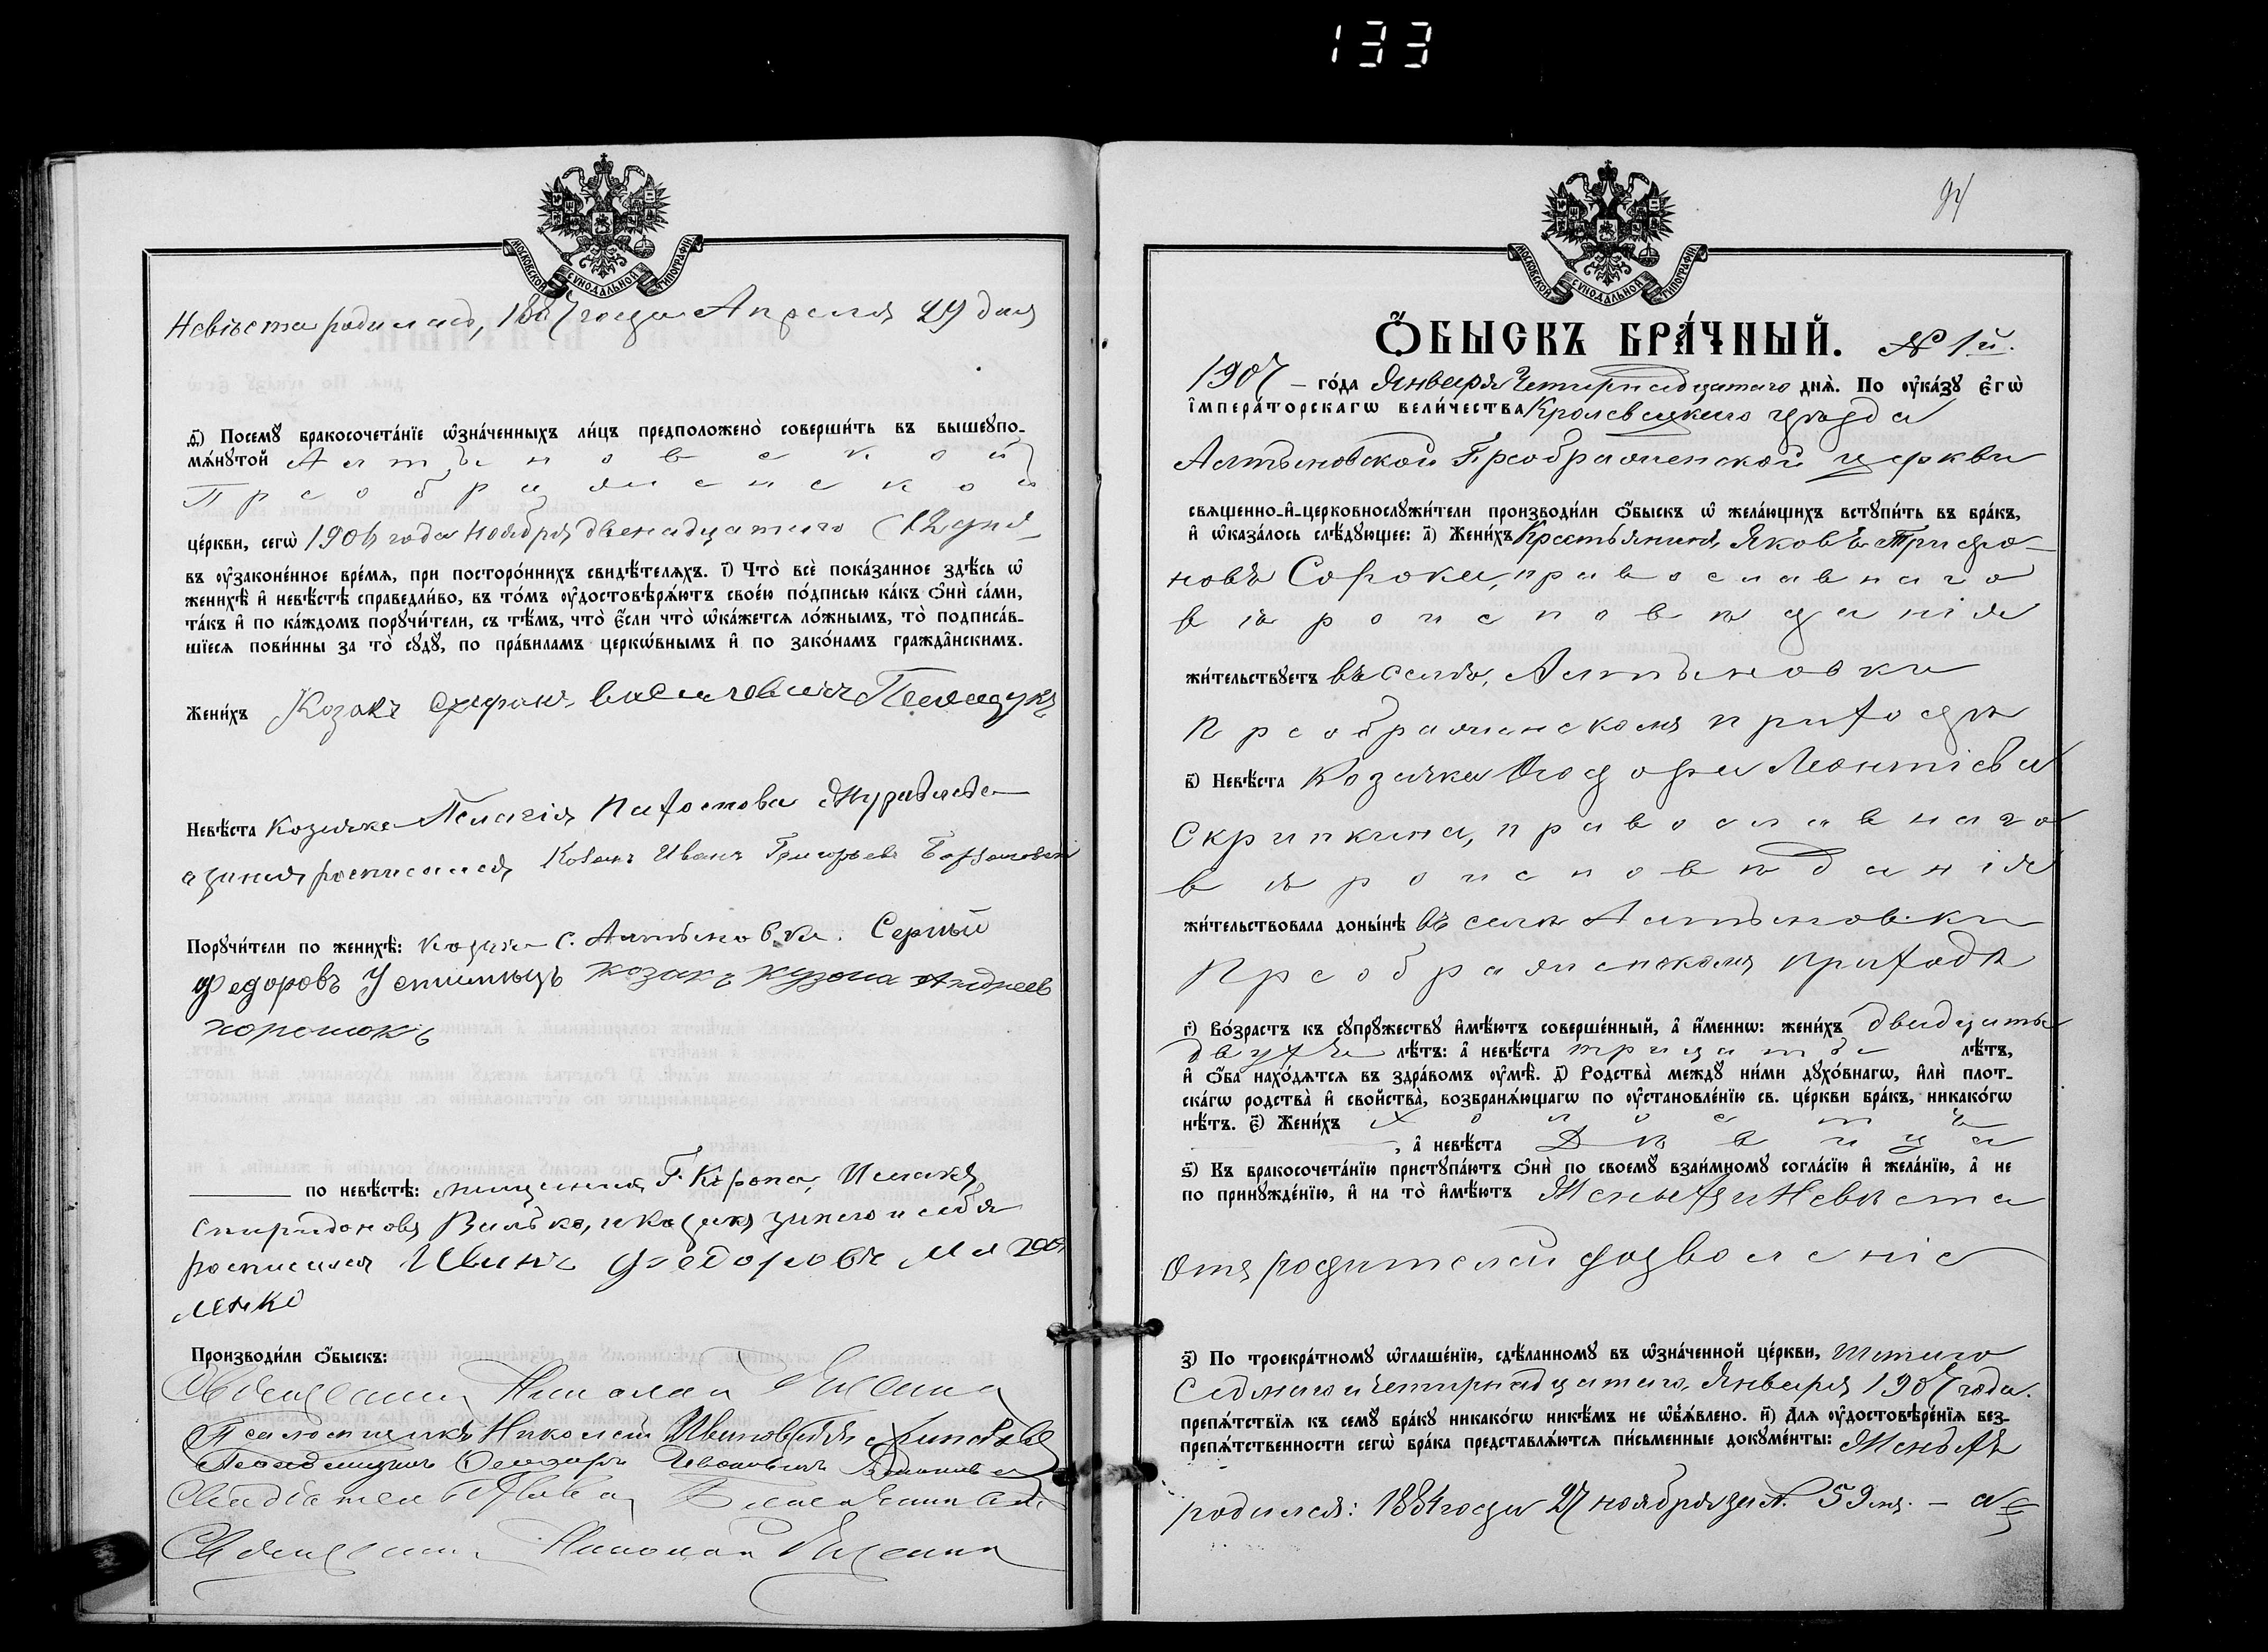 133
МОСКОВСКОЙ СѴНОДАЛЬНОЙ ТИПОГРАФІИ
Невѣста родилась, 1887 года Апреля 29 дня
ѳ҃) Посемꙋ̀ бракосочета́нїе ѡ҆зна́ченныхъ ли́цъ предположено̀ соверши́ть въ вышеꙋпо-
мѧ́нꙋтой Алтыновской
Преображенской
це́ркви, сегѡ̀ 1906 года Ноября двенадцатого (12 дня
въ ᲂу҆зако́ненное вре́мѧ, при посторо́ннихъ свидѣ́телѧхъ. і҃) Что̀ всѐ пока́занное здѣ́сь ѡ҆
женихѣ̀ и҆ невѣ́стѣ справедли́во, въ то́мъ ᲂу҆достовѣрѧ́ютъ свое́ю по́дписью ка́къ ѻ҆нѝ са́ми,
та́къ и҆ по ка́ждомъ порꙋчи́тели, съ тѣ́мъ, что̀ є҆́сли что̀ ѡ҆ка́жетсѧ ло́жнымъ, то̀ подписа́в-
шїесѧ пови́нны за то̀ сꙋдꙋ̀, по пра́виламъ церкѡ́внымъ и҆ по зако́намъ гражда̑нскимъ.
Жени́хъ Козакъ
Невѣ́ста Козачка Пелагія Пахомова
а за нея росписался Козакъ Иванъ Григорьевъ
Порꙋчи́тели по женихѣ̀: козаки с. Алтыновки. Сергѣй
Федоровъ Устименъ козакъ Кузма Андреев
порошокъ
по невѣ́стѣ: мещанинъ Г. Короп, Исаакъ
Спиридоновъ Вилько, и козакъ за него и себя
росписался Иванъ Федоровъ
ленко
Производи́ли ѻ҆́быскъ:
Священникъ Николай
Псаломщикъ Николай Ивановъ
Священникъ Николай
94
МОСКОВСКОЙ СѴНОДАЛЬНОЙ ТИПОГРАФІИ
Ѻ҆́БЫСКЪ БРА́ЧНЫЙ. № 1й.
1907 – го́да Января Четырнадцатаго днѧ̀. По ᲂу҆ка́зꙋ Є҆гѡ̀
І҆мпера́торскагѡ вели́чества Кролевецкаго уезда
Алтыновской Преображенской церкви
свѧщенно-и҆-церковнослꙋжи́тели производи́ли ѻ҆́быскъ ѡ҆ жела́ющихъ встꙋпи́ть въ бра́къ,
и҆ ѡ҆каза́лось слѣ́дꙋющее: а҃) Жени́хъ Крестьянинъ, Яковъ Трифо-
новъ Сорока, православнаго
вѣроисповѣданія
жи́тельствꙋетъ въ селѣ, Алтыновки
Преображенскомъ приходѣ
в҃) Невѣ́ста Козачка Ѳеодора Леонтіева
Скрипкина, православнаго
вѣроисповѣданія
жи́тельствовала доны́нѣ въ селѣ Алтыновки
Преображенскомъ приходѣ
г҃) Во́зрастъ къ сꙋпрꙋ́жествꙋ и҆мѣ́ютъ соверше́нный, а҆ и҆́меннѡ: жени́хъ двадцать
двухъ лѣ́тъ: а҆ невѣ́ста лѣ́тъ,
и҆ ѻ҆́ба нахо́дѧтсѧ въ здра́вомъ ᲂу҆мѣ̀. д҃) Родства̀ междꙋ̀ ни́ми дꙋхо́внагѡ, и҆лѝ плот-
ска́гѡ родства̀ и҆ сво́йства̀, возбранѧ́ющагѡ по ᲂу҆становле́нїю св. це́ркви бра́къ, никако́гѡ
нѣ́тъ. є҃) Жени́хъ холостъ
, а҆ невѣ́ста Дѣвица
ѕ҃) Къ бракосочета́нїю пристꙋпа́ютъ ѻ҆нѝ по своемꙋ̀ взаи́мномꙋ согла́сїю и҆ жела́нїю, а҆ не
по принꙋжде́нїю, и҆ на то̀ и҆мѣ́ютъ Женихъ и Невѣста
отъ родителей дозволеніе
з҃) По троекра́тномꙋ ѡ҆глаше́нїю, сдѣ́ланномꙋ въ ѡ҆зна́ченной це́ркви, шестаго
Седмаго и Четырнадцатаго, Января 1907 года.
препѧ́тствїѧ къ семꙋ̀ бра́кꙋ никако́гѡ никѣ́мъ не ѡ҆б̾ѧ́влено. и҃) Длѧ ᲂу҆достовѣре́нїѧ без-
препѧ́тственности сегѡ̀ бра́ка представлѧ́ютсѧ пи́сьменные докꙋме́нты: Женихъ
родился: 1884 года 27 ноября за №. 59 мъ. – а